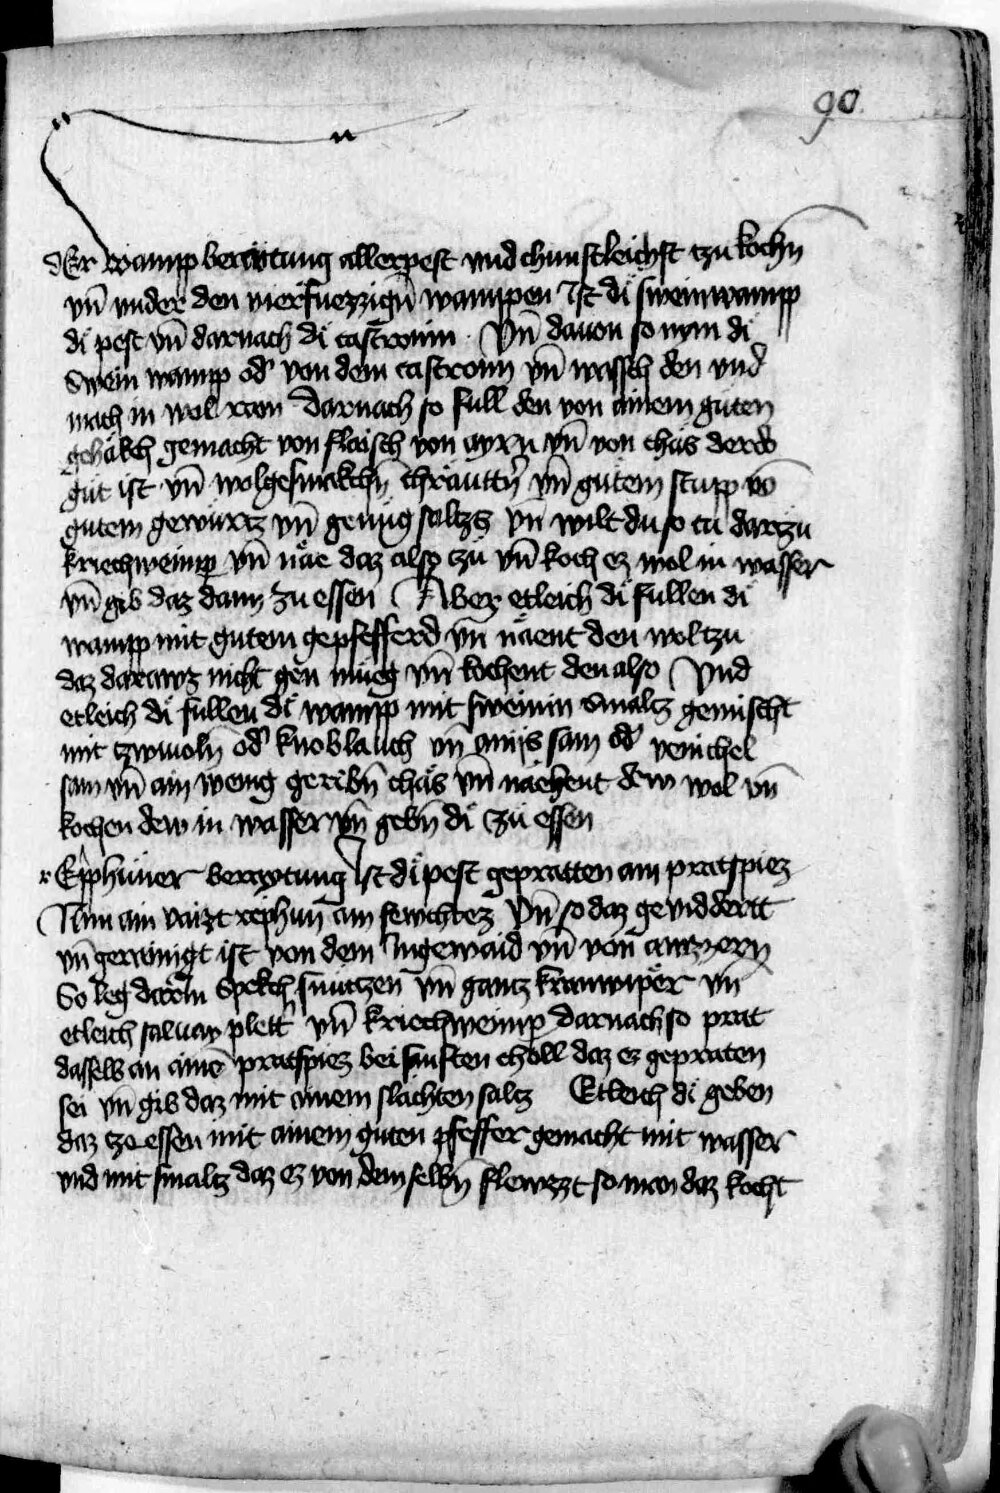 90
dEr wampp beraytung allerpest vnd chunstleichst tzu kochn̄
vn̄ vnder den vierfuezzign̄ wamppen Ist di sweinwampp
di pest vn̄ darnach di castronin · Vn̄ dauon so nym di
Swein wampp od' von dem castronn vn̄ wassch den vnd
mach in wol rain Darnach so full den von ainem guten
gehäkch gemacht von flaisch von ayrn vn̄ von chäs der do
gut ist vn̄ wolgesmakchn̄ chräuttn̄ vn̄ gutem stupp vō
gutem gewürtz vn̄ genüg saltzs vn̄ wilt du so tü dartzu
kriechweinper vn̄ näe daz also tzü vn̄ koch ez wol in wasser
vn̄ gib daz dann zu essen Aber etleich di fullen di
wampp mit gutem gepfefferd vn̄ näent den wol tzu
daz darawz nicht gen müeg vn̄ kochent den also Vnd
etleich di fullen di wampp mit sweinin smaltz gemischt
mit tzwivoln̄ od' knoblauch vn̄ anijs sam od' venichel
sam vn̄ ain wenig geribn̄ chäs vn̄ näehent dew wol vn̄
kochen dew in wasser vn̄ gebn̄ di zü essen
r Epphüner beraytung Ist di pest gepratten am pratspiez
Nim ain vaizt rephun ain fewchtez Vn̄ so daz geviddertt
vn̄ gerainigt ist von dem Ingewaid vn̄ von awzzern
So leg darin Spekch snützen vn̄ gantz kranwiper vn̄
etleich saluay plett' vn̄ kriechweinper darnach so prat
dasselb an aine pratspiez bei sanften choll daz ez gepraten
sei vn̄ gib daz mit ainem slächten saltz Etleich di geben
daz tze essen mit ainem guten pfeffer gemacht mit wasser
vnd mit smaltz daz ez von dem selbn̄ flewzzt so man daz kocht